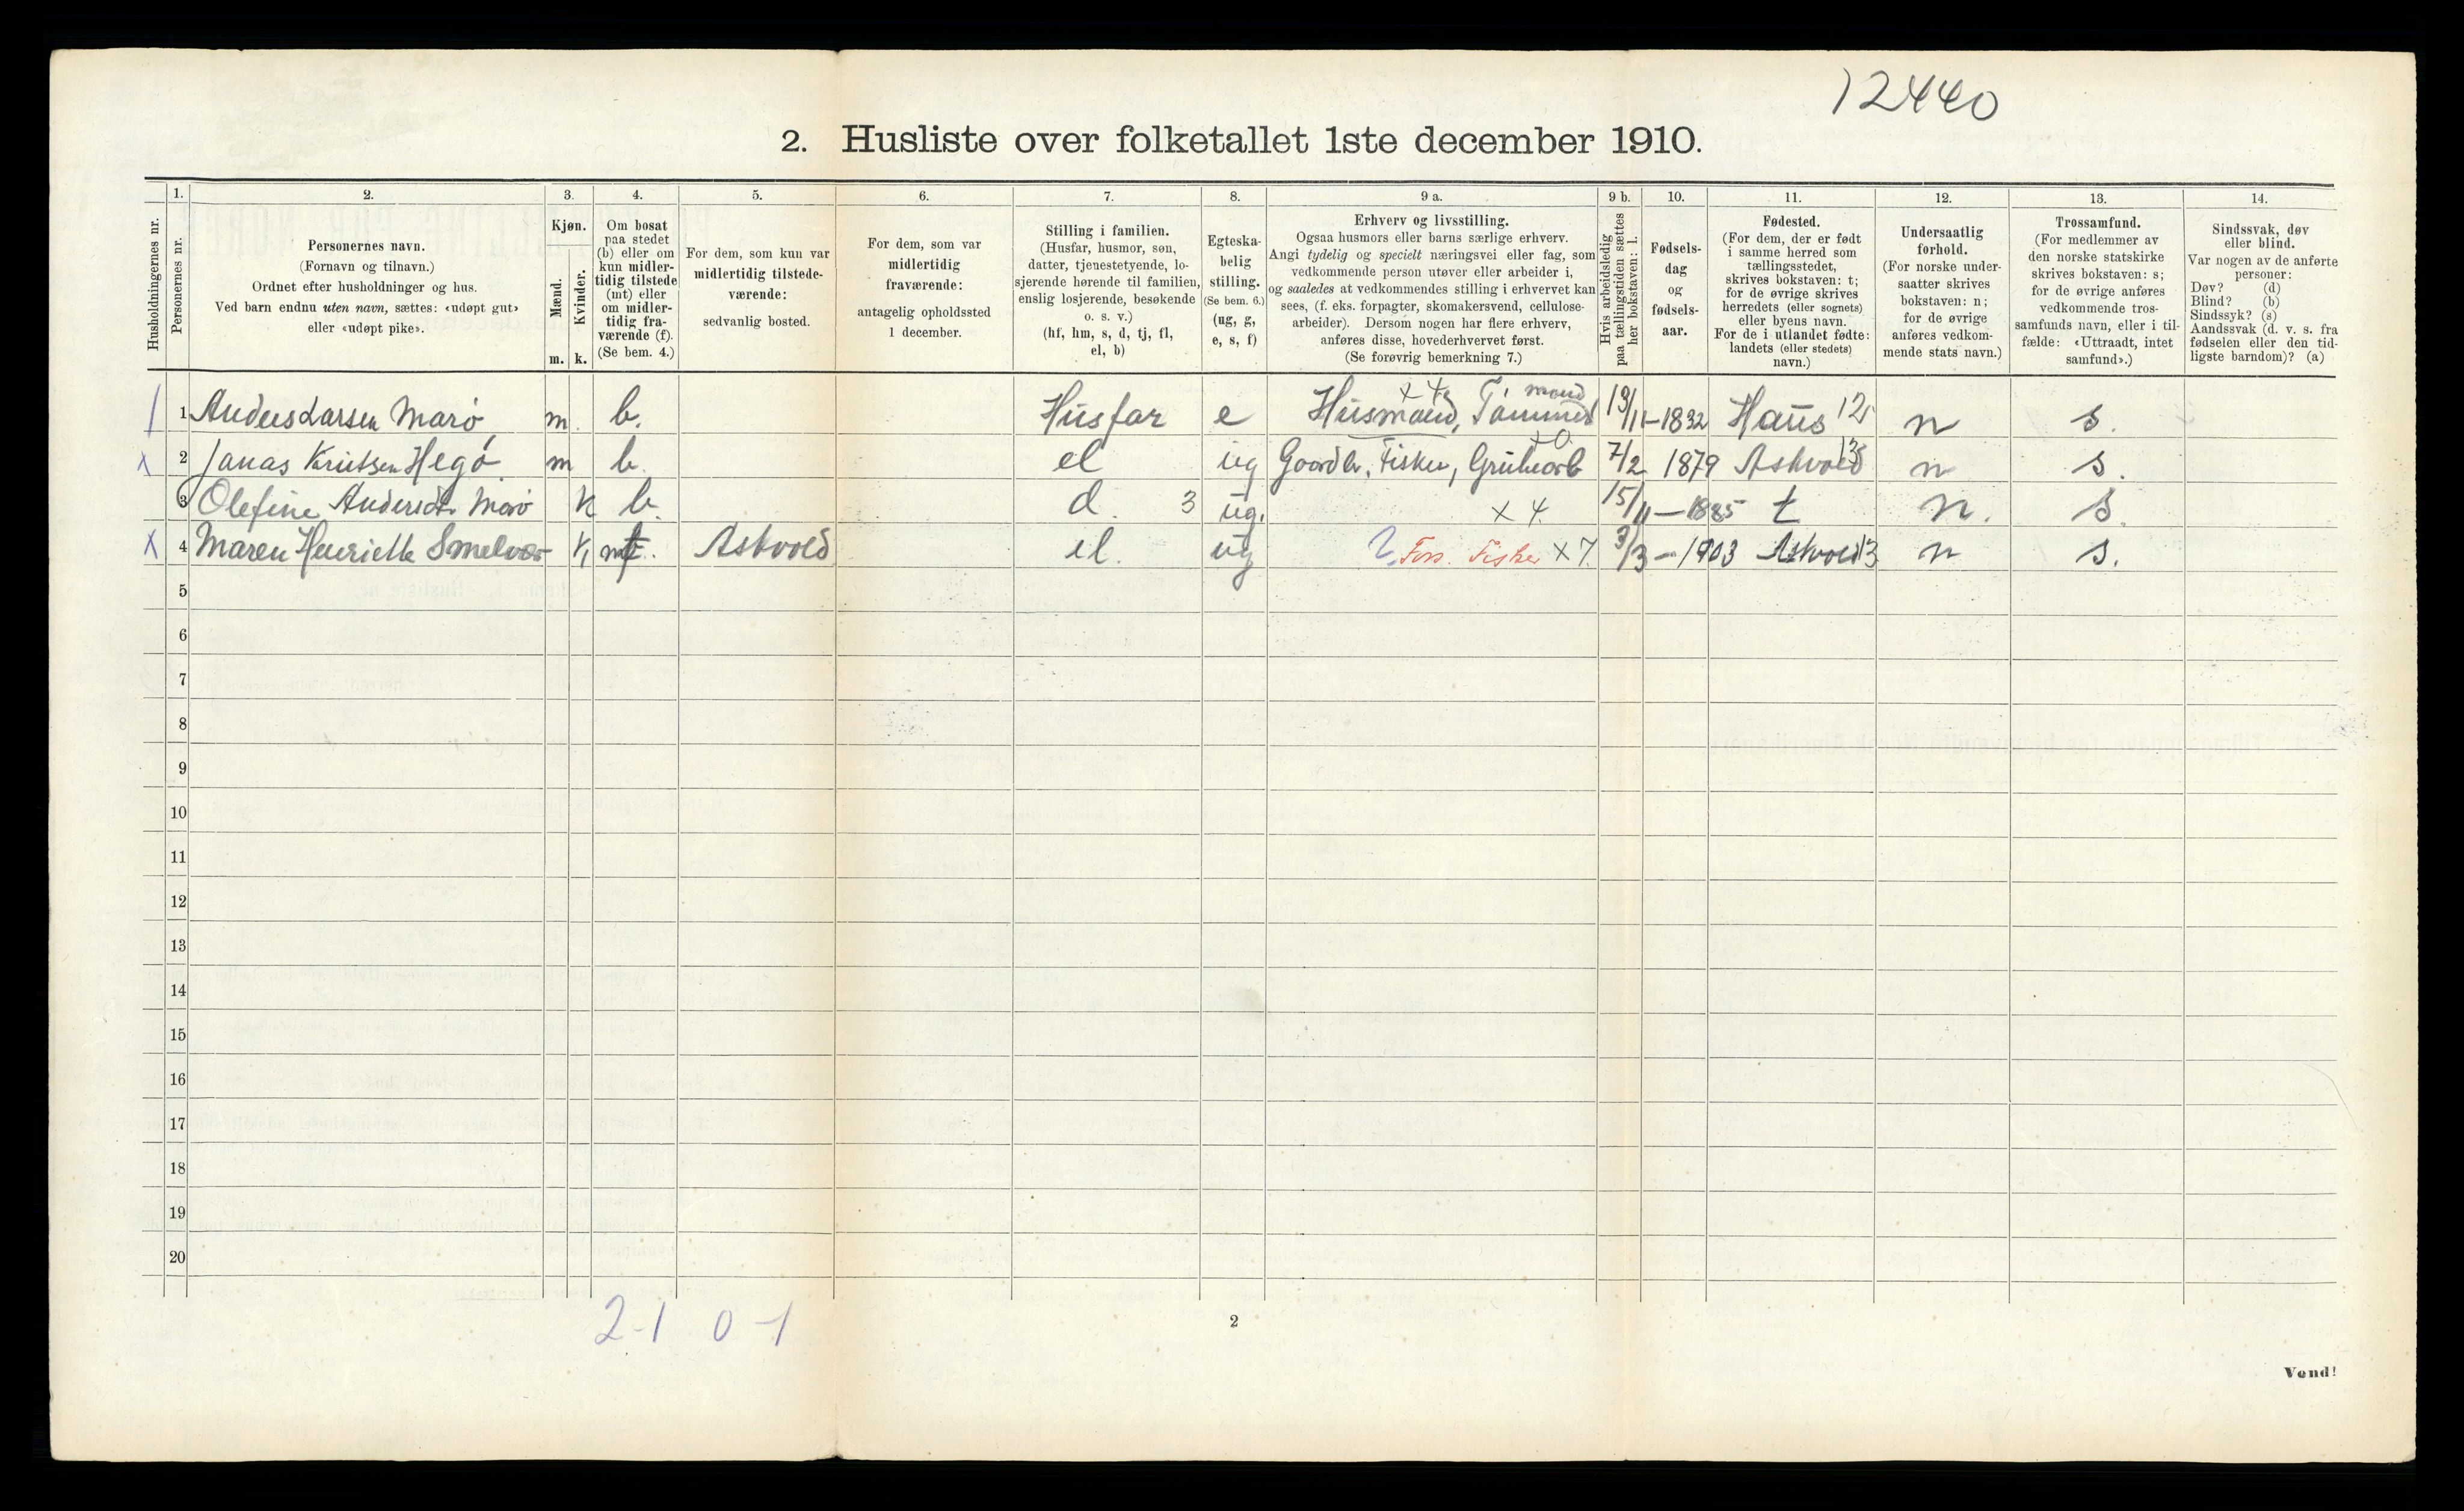 12440
2. Husliste over folketallet 1ste december 1910.
Husholdningernes nr.
1.
Personernes nr.
2.
Personernes navn.
(Fornavn og tilnavn.)
Ordnet efter husholdninger og hus.
Ved barn endnu uten navn, sættes: «udøpt gut»
eller «udøpt pike».
3.
Kjøn.
Mænd.
Kvinder.
m. k.
4.
Om bosat
paa stedet
(b) eller om
kun midler-
tidig tilstede
(mt) eller
om midler-
tidig fra-
værende (f).
(Se bem. 4.)
5.
For dem, som kun var
midlertidig tilstede-
værende:
sedvanlig bosted.
6.
For dem, som var
midlertidig
fraværende:
antagelig opholdssted
1 december.
7.
Stilling i familien.
(Husfar, husmor, søn,
datter, tjenestetyende, lo-
sjerende hørende til familien,
enslig losjerende, besøkende
o. s. v.)
(hf, hm, s, d, tj, fl,
el, b)
8.
Egteska-
belig
stilling.
(Se bem. 6.)
(ug, g,
e, s, f)
9 a.
Erhverv og livsstilling.
Ogsaa husmors eller barns særlige erhverv.
Angi tydelig og specielt næringsvei eller fag, som
vedkommende person utøver eller arbeider i,
og saaledes at vedkommendes stilling i erhvervet kan
sees, (f. eks. forpagter, skomakersvend, cellulose-
arbeider). Dersom nogen har flere erhverv,
anføres disse, hovederhvervet først.
(Se forøvrig bemerkning 7.)
9 b.
Hvis arbeidsledig
paa tællingstiden sættes
her bokstaven: l.
10.
Fødsels-
dag
og
fødsels-
aar.
11.
Fødested.
(For dem, der er født
i samme herred som
tællingsstedet,
skrives bokstaven: t;
for de øvrige skrives
herredets (eller sognets)
eller byens navn.
For de i utlandet fødte:
landets (eller stedets)
navn.)
12.
Undersaatlig
forhold.
(For norske under-
saatter skrives
bokstaven: n;
for de øvrige
anføres vedkom-
mende stats navn.)
13.
Trossamfund.
(For medlemmer av
den norske statskirke
skrives bokstaven: s;
for de øvrige anføres
vedkommende tros-
samfunds navn, eller i til-
fælde: «Uttraadt, intet
samfund».)
14.
Sindssvak, døv
eller blind.
Var nogen av de anførte
personer:
Døv? (d)
Blind? (b)
Sindssyk? (s)
Aandssvak (d. v. s. fra
fødselen eller den tid-
ligste barndom)? (a)
1 Anders Larsen Marø m. b. Husfar e Husmand, x 4 mand 13/11-1832 Haus 12 n s.
x 2 Janas Knutsen Hegø m b. el ug Gaardbr, Fisker, Grubearb 7/2 1879 Askvold 13 n s.
3 Olefine Andersdtr Marø k b. d. 3 ug. x 4. 15/11-1885 t n. s.
x 4 Maren Henriette Smelvær k mt. Askvold el. ug Fors. Fisker x 7. 3/3-1903 Askvold 13 n s.
5
6
7
8
9
10
11
12
13
14
15
16
17
18
19
20
2-1 0-1
2
Vend!